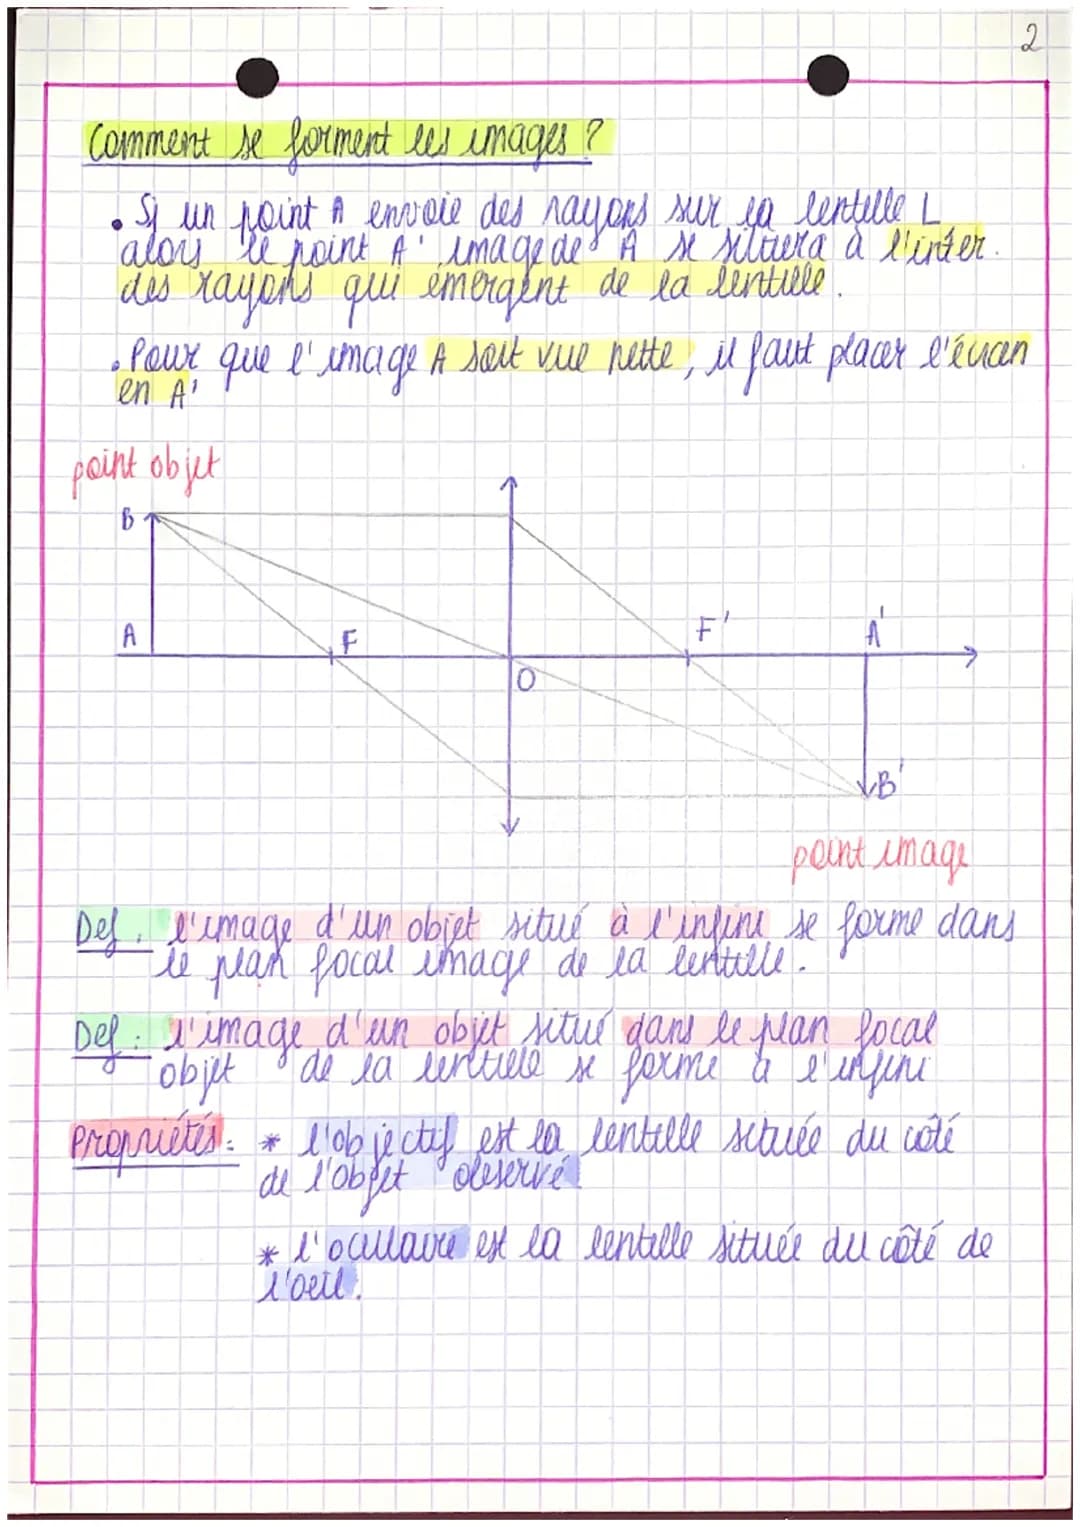 2
Comment se forment les images ?
• Si un point A envoie des rayons sur la lentille L
alors le point A' image de A se situera à l'inter.
des rayons qui émergent de la lentille.
• Pour que l'image A soit vue nette, il faut placer l'écran
en A'
point objet
B
A
F
O
F'
A'
B'
point image
Def : l'image d'un objet situé à l'infini se forme dans
le plan focal image de la lentille.
Def : l'image d'un objet situé dans le plan focal
objet de la lentille se forme à l'infini
Propriétés : * l'objectif est la lentille située du côté
de l'objet observé
* l'oculaire est la lentille située du côté de
l'oeil.